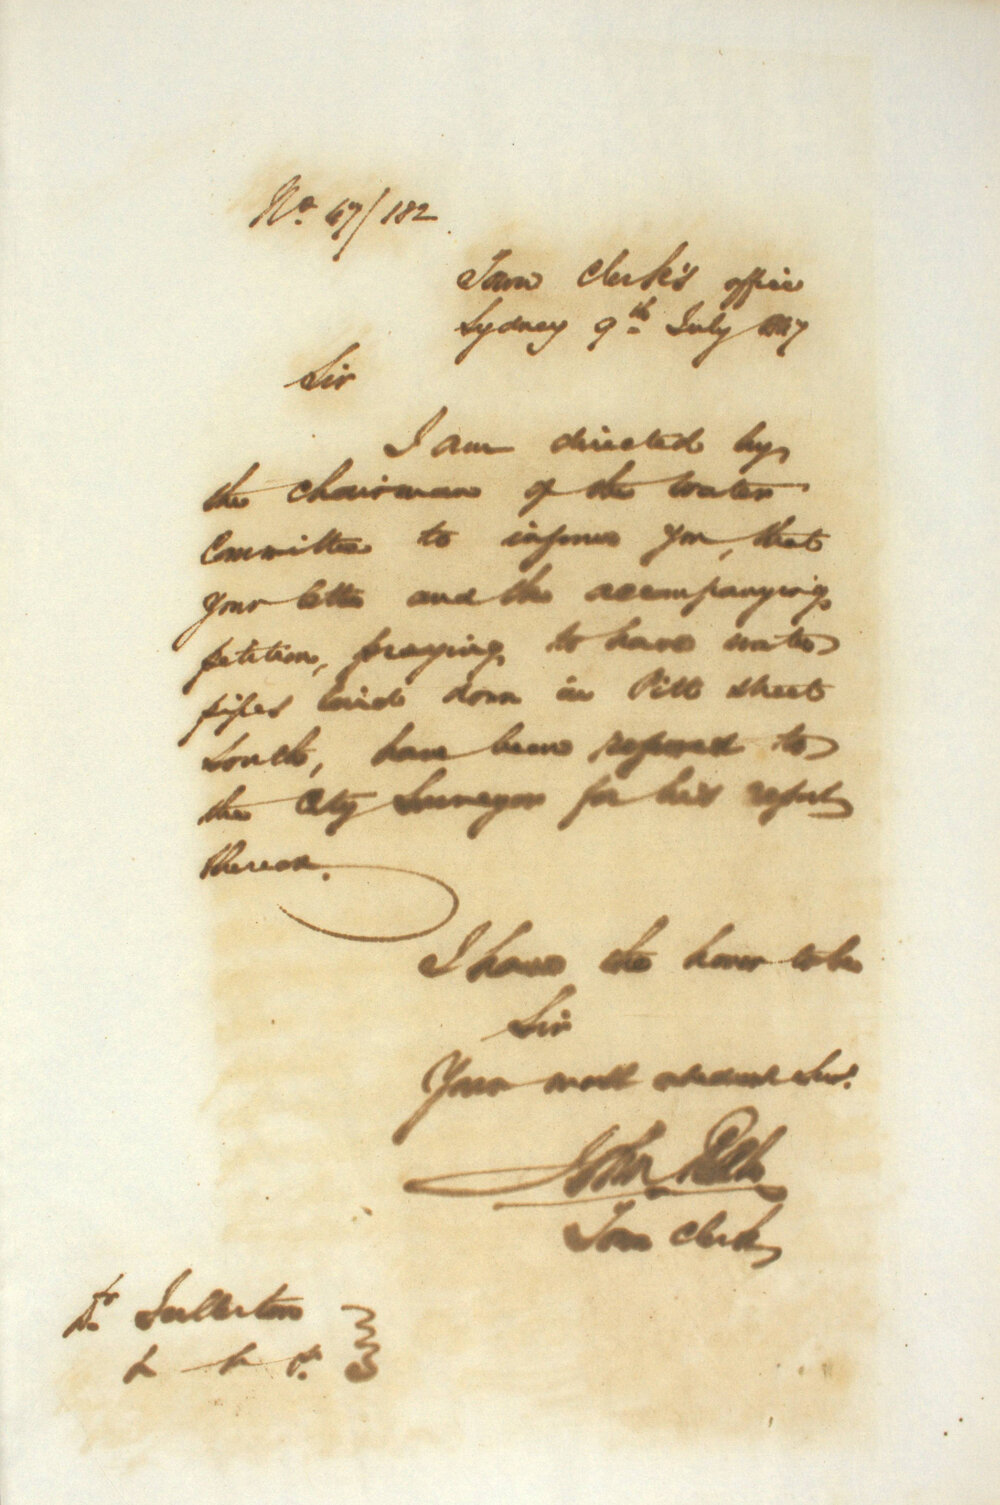 No. 47/182
Town Clerk's office
Sydney 9th July 1847
Sir
I am directed by
the Chairman of the Water
Committee to inform you, that
your letter and the accompanying
petition, praying to have water
pipes laid down in Pitt Street
South, have been referred to
the City Surveyor for his report
thereon.
I have the honor to be
Sir
Your most obedient Servt.
John Rae
Town Clerk
Dr. Fullerton